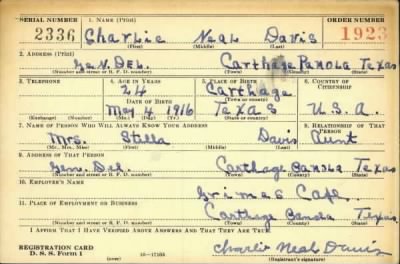 SERIAL NUMBER 1. NAME (Print) ORDER NUMBER
2336 Charlie Neal Davis 1923
(First) (Middle) (Last)
2. ADDRESS (Print)
Gen. Del. Carthage Panola Texas
(Number and street or R. F. D. number) (Town) (County) (State)
3. TELEPHONE 4. AGE IN YEARS 5. PLACE OF BIRTH 6. COUNTRY OF CITIZENSHIP
24 Carthage
DATE OF BIRTH (Town or county)
May 4 1916 Texas U.S.A.
(Exchange) (Number) (Mo.) (Day) (Yr.) (State or country)
7. NAME OF PERSON WHO WILL ALWAYS KNOW YOUR ADDRESS 8. RELATIONSHIP OF THAT PERSON
Mrs. Stella Davis Aunt
(Mr., Mrs., Miss) (First) (Middle) (Last)
9. ADDRESS OF THAT PERSON
Gen. Del. Carthage Panola Texas
(Number and street or R. F. D. number) (Town) (County) (State)
10. EMPLOYER'S NAME
Grimes Cafe
11. PLACE OF EMPLOYMENT OR BUSINESS
Carthage Panola Texas
(Number and street or R. F. D. number) (Town) (County) (State)
I AFFIRM THAT I HAVE VERIFIED ABOVE ANSWERS AND THAT THEY ARE TRUE.
REGISTRATION CARD
D. S. S. Form 1 (over) 16—17105 Charlie Neal Davis
(Registrant's signature)